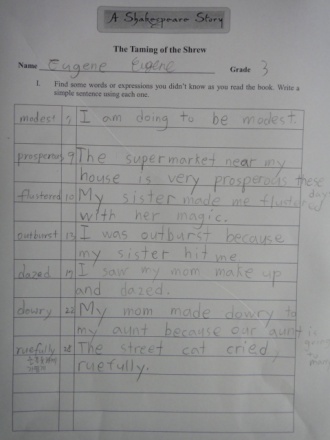 A Shakespeare Story
The Taming of the Shrew
Name Eugene Eugene Grade 3
I. Find some words or expressions you didn't know as you read the book. Write a
simple sentence using each one.
modest 7 I am doing to be modest.
prosperous 9 The supermarket near my
house is very prosperous these
days
flustered 10 My sister made me flustered
with her magic.
outburst 13 I was outburst because
my sister hit me
dazed 17 I saw my mom make up
and dazed.
dowry 22 My mom made dowry to
my aunt because our aunt is
ruefully 28 The street cat cried
ruefully.